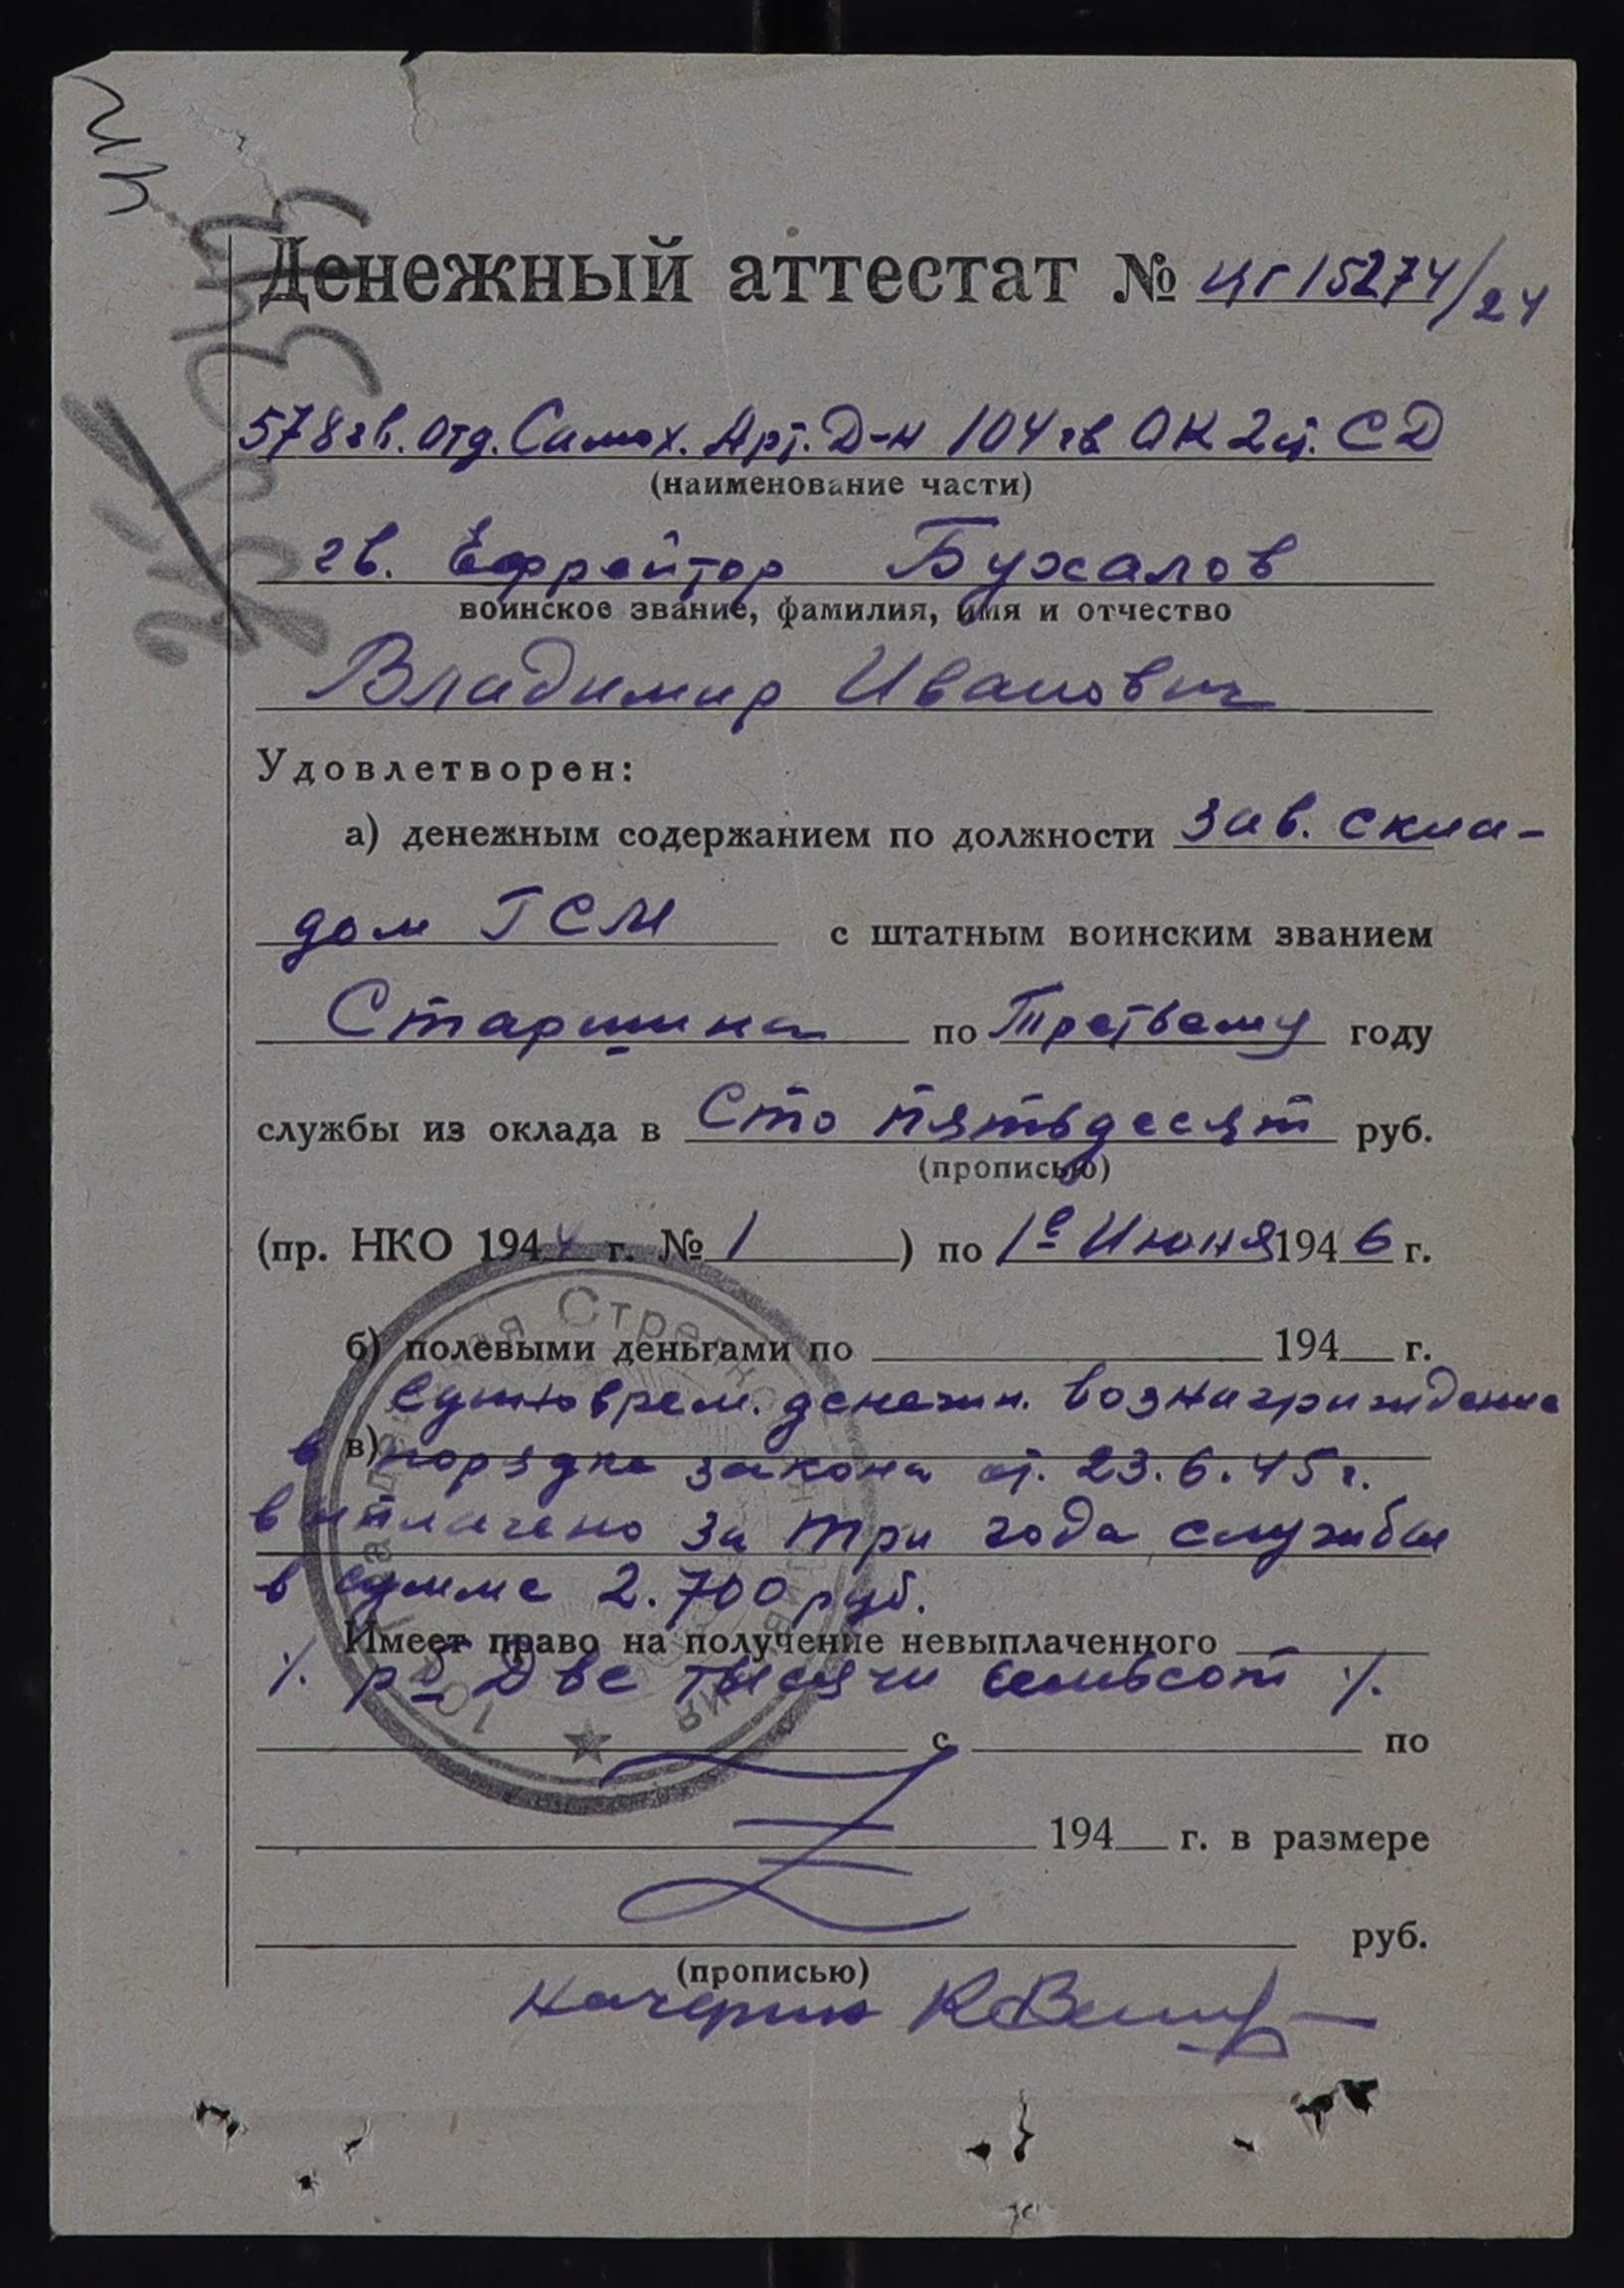 Денежный аттестат № ЦГ 15274/24
578 гв. отд. Самох. Арт. Д-н 104 гв ОК 2ст. СД
(наименование части)
гв. Ефрейтор Бухалов
воинское звание, фамилия, имя и отчество
Владимир Иванович
Удовлетворен:
а) денежным содержанием по должности Зав. скла-
дом ГСМ с штатным воинским званием
Старшина по Третьему году
службы из оклада в Сто пятьдесят руб.
(прописью)
(пр. НКО 1944 г. № 1 ) по 1е Июня 1946 г.
б) полевыми деньгами по 194 г.
Единоврем. денежн. вознаграждение
в) в порядке закона от. 23.6.45 г.
выплачено за три года службы
в сумме 2.700 руб.
Имеет право на получение невыплаченного
./. рб Две тысячи семьсот ./.
с по
194 г. в размере
руб.
(прописью)